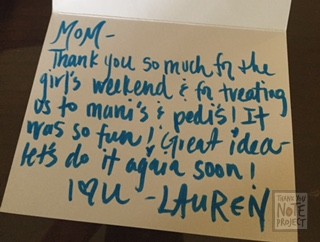 MOM-
Thank you so much for the
girl's weekend & for treating
us to mani's & pedi's! It
was so fun! Great idea-
let's do it again soon!
I ♥ U -LAUREN
THANK YOU
NOTE
PROJECT